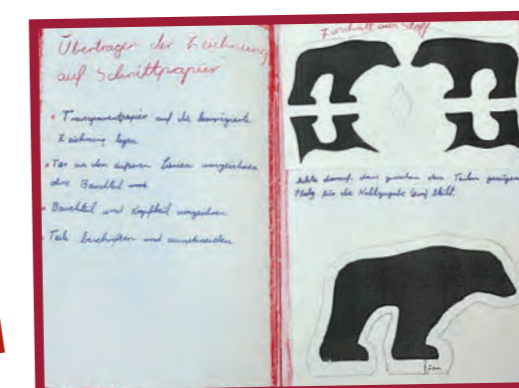 Übertragen der Zeichnung
auf Schnittpapier
• Transparentpapier auf die korrigierte
Zeichnung legen
• Tier an den äußeren Linien umzeichnen
ohne Bauchteil und
• Bauchteil und Kopfteil umzeichnen
• Teile beschriften und ausschneiden
Zuschnitt aus Stoff
Achte darauf, dass zwischen den Teilen genügend
Platz für die Nahtzugabe (2cm) bleibt.
2cm